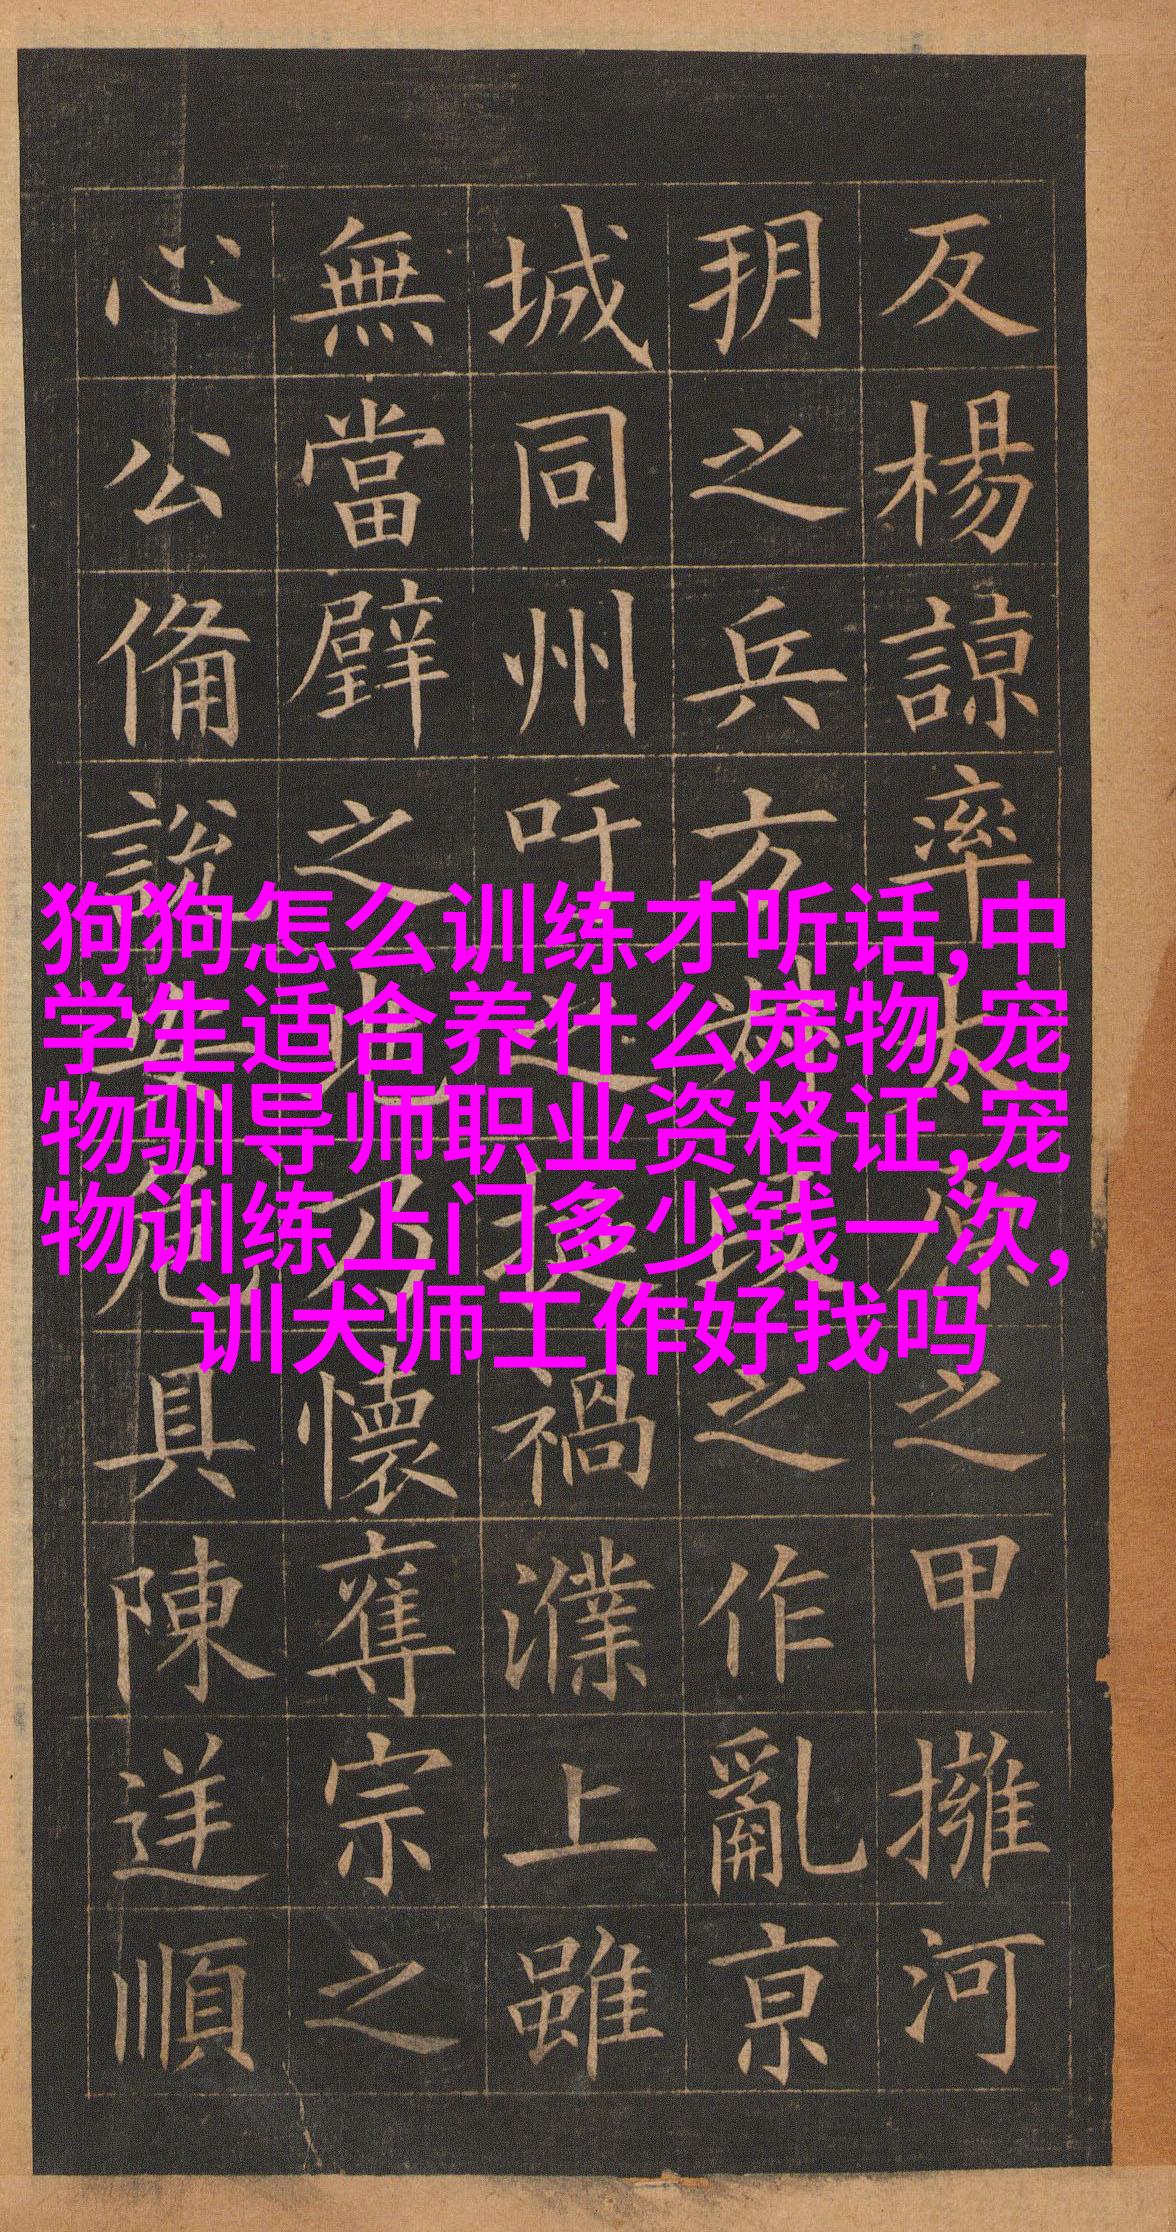 狗狗怎么训练才听话,中
学生适合养什么宠物,宠
物驯导师职业资格证,宠
物训练上门多少钱一次,
训犬师工作好找吗
反楊諒率太原之甲擁河
朔之兵方叔段之作亂京
城同州吁之挻禍濮上雖
無當璧之兆乃懷奪宗之
心公備說安危具陳逆順